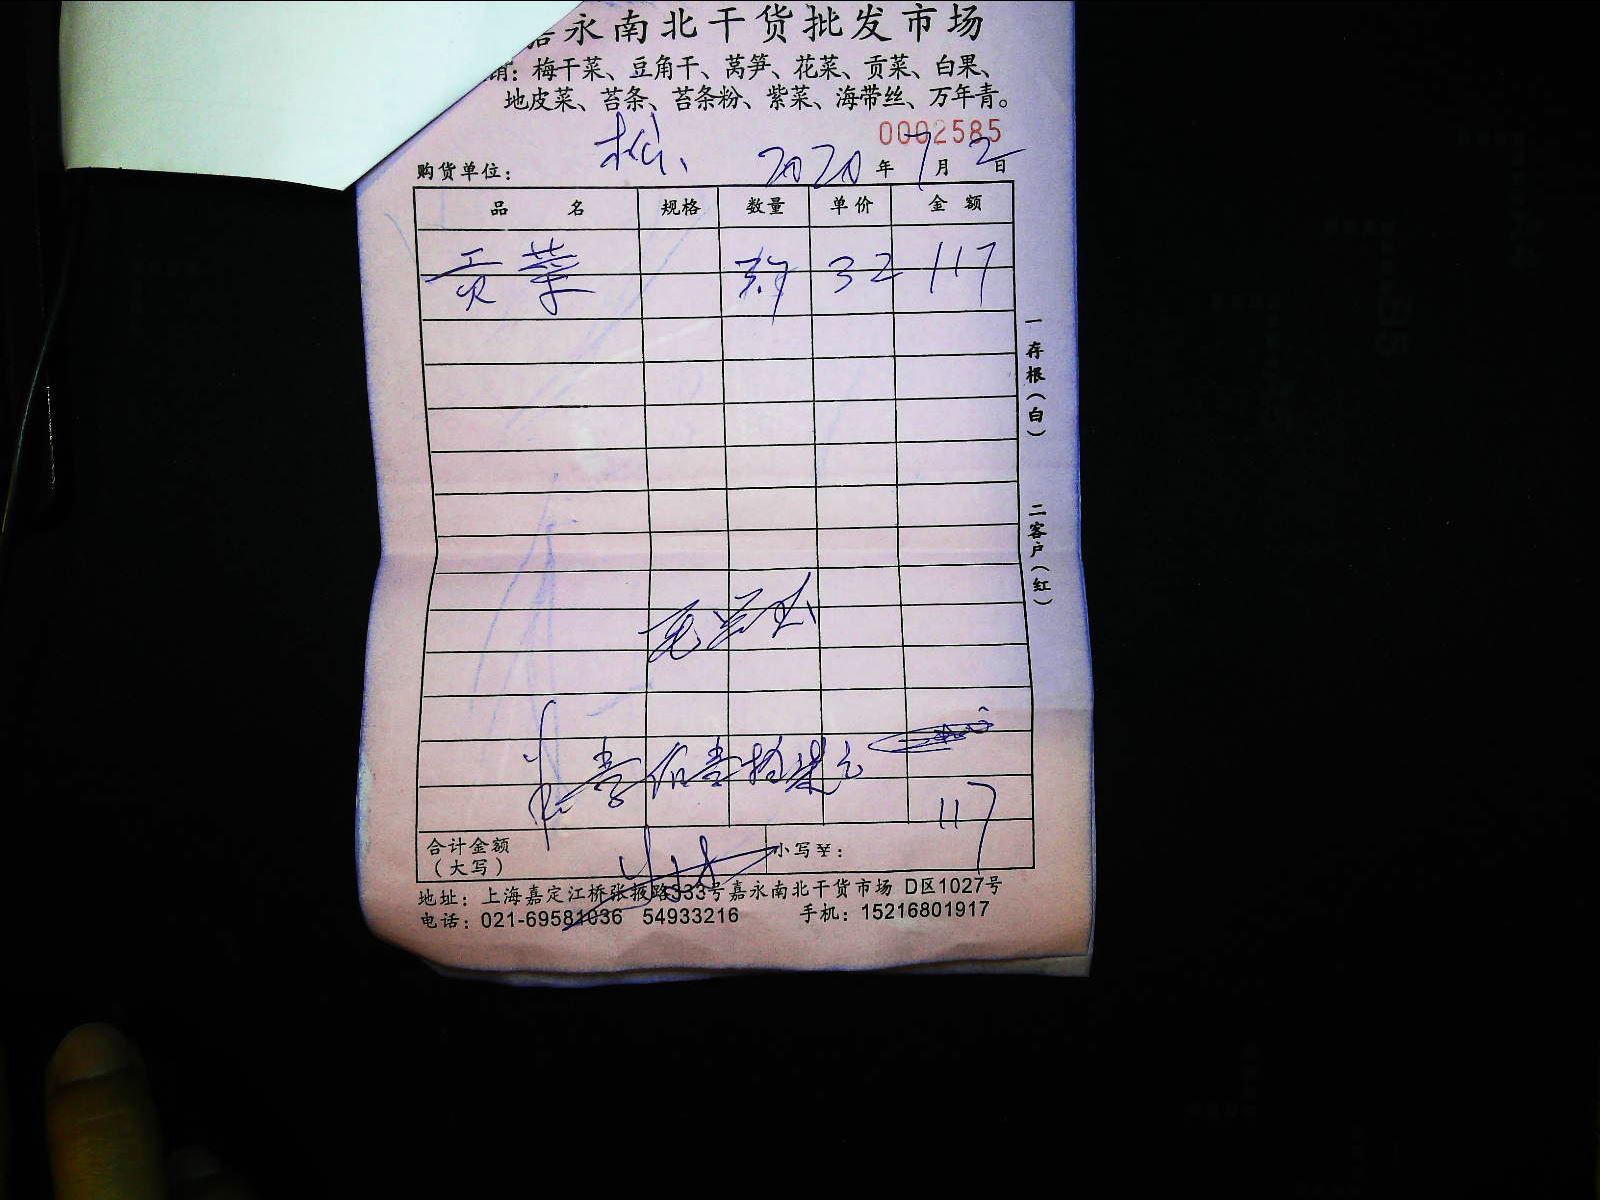 嘉永南北干货批发市场
销：梅干菜、豆角干、莴笋、花菜、贡菜、白果、
地皮菜、苔条、苔条粉、紫菜、海带丝、万年青。
0002585
购货单位： 松 2020年7月2日
品 名 规格 数量 单价 金 额
贡菜 32 117
一存根（白）
二客户（红）
壹佰壹拾柒元
117
合计金额（大写） 小写¥：
地址：上海嘉定江桥张掖路333号嘉永南北干货市场 D区1027号
电话：021-69581036 54933216 手机：15216801917